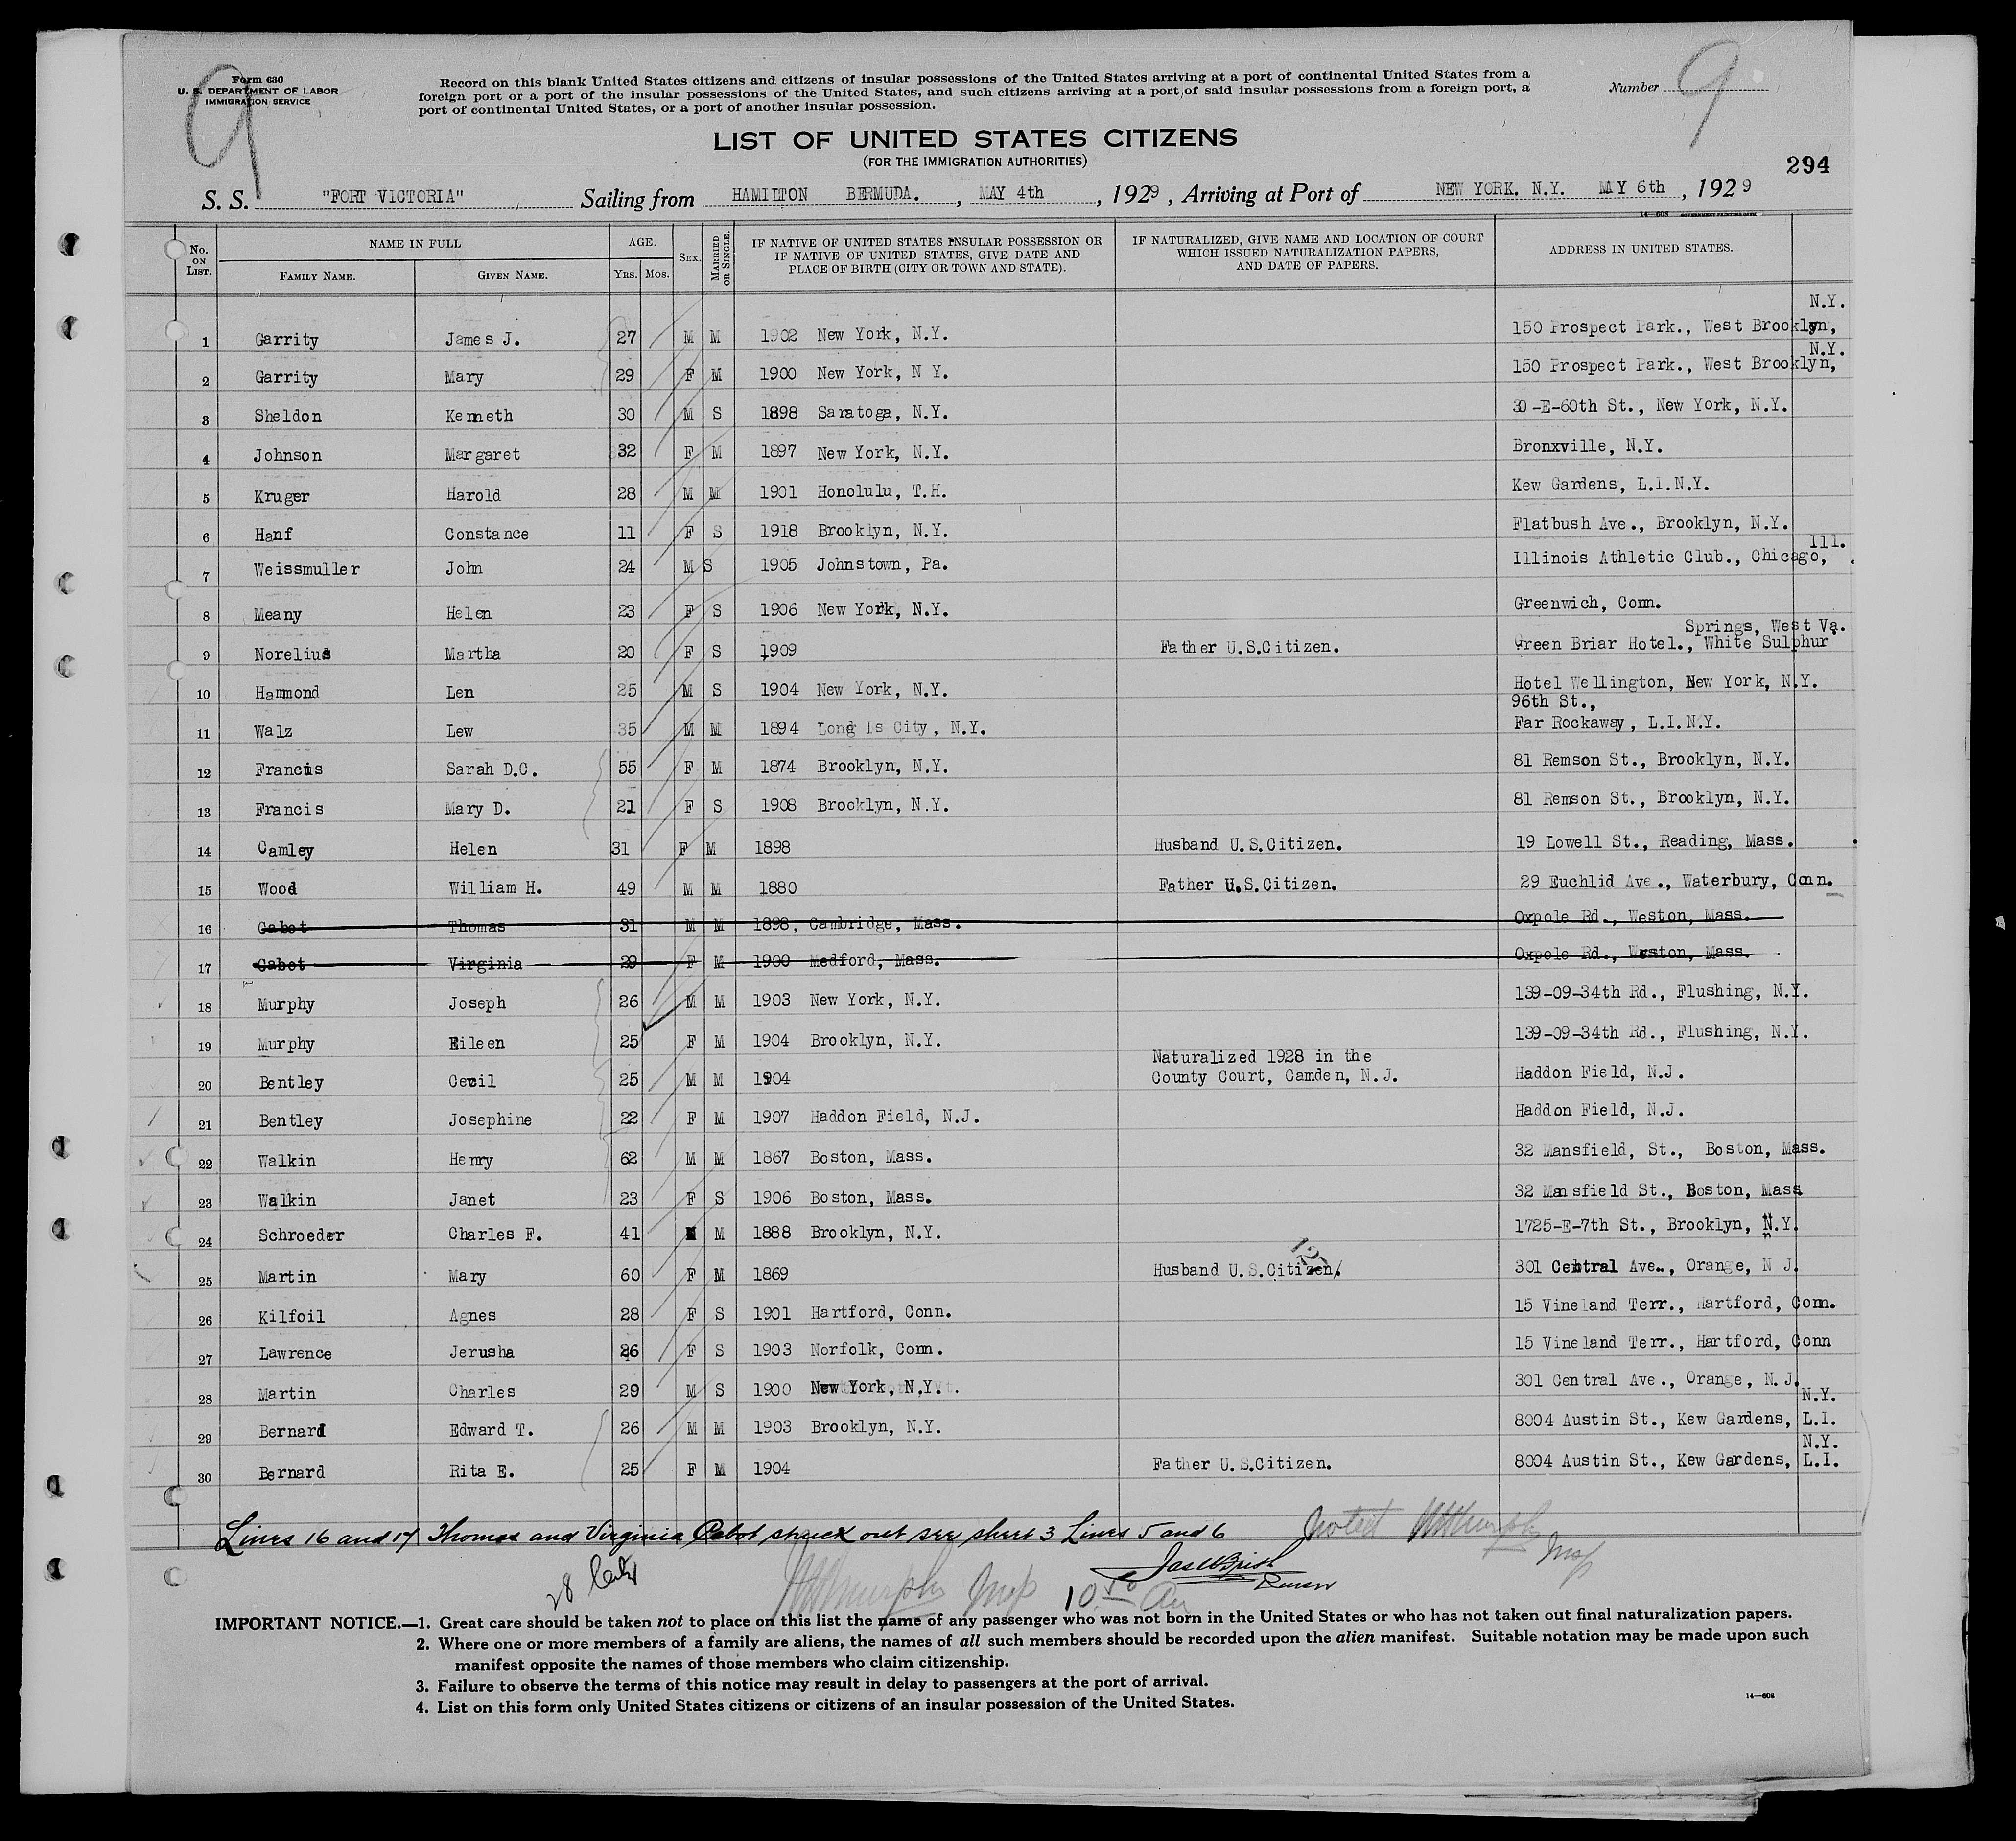 9
Form 630
U. S. DEPARTMENT OF LABOR
IMMIGRATION SERVICE
Record on this blank United States citizens and citizens of insular possessions of the United States arriving at a port of continental United States from a
foreign port or a port of the insular possessions of the United States, and such citizens arriving at a port of said insular possessions from a foreign port, a
port of continental United States, or a port of another insular possession.
Number 9
LIST OF UNITED STATES CITIZENS
(FOR THE IMMIGRATION AUTHORITIES)
294
S. S. "FORT VICTORIA" Sailing from HAMILTON BERMUDA. , MAY 4th , 1929 , Arriving at Port of NEW YORK. N.Y. MAY 6th , 1929
14—608 GOVERNMENT PRINTING OFFICE
No. ON LIST. NAME IN FULL FAMILY NAME. GIVEN NAME. AGE. YRS. MOS. SEX. MARRIED OR SINGLE. IF NATIVE OF UNITED STATES INSULAR POSSESSION OR IF NATIVE OF UNITED STATES, GIVE DATE AND PLACE OF BIRTH (CITY OR TOWN AND STATE). IF NATURALIZED, GIVE NAME AND LOCATION OF COURT WHICH ISSUED NATURALIZATION PAPERS, AND DATE OF PAPERS. ADDRESS IN UNITED STATES.
1 Garrity James J. 27 M M 1902 New York, N.Y. 150 Prospect Park., West Brooklyn, N.Y.
2 Garrity Mary 29 F M 1900 New York, N Y. 150 Prospect Park., West Brooklyn, N.Y.
3 Sheldon Kenneth 30 M S 1898 Saratoga, N.Y. 30-E-60th St., New York, N.Y.
4 Johnson Margaret 32 F M 1897 New York, N.Y. Bronxville, N.Y.
5 Kruger Harold 28 M M 1901 Honolulu, T.H. Kew Gardens, L.I.N.Y.
6 Hanf Constance 11 F S 1918 Brooklyn, N.Y. Flatbush Ave., Brooklyn, N.Y.
7 Weissmuller John 24 M S 1905 Johnstown, Pa. Illinois Athletic Club., Chicago, Ill.
8 Meany Helen 23 F S 1906 New York, N.Y. Greenwich, Conn.
9 Norelius Martha 20 F S 1909 Father U.S.Citizen. Green Briar Hotel., White Sulphur Springs, West Va.
10 Hammond Len 25 M S 1904 New York, N.Y. Hotel Wellington, New York, N.Y.
11 Walz Lew 35 M M 1894 Long Is City, N.Y. 96th St., Far Rockaway, L.I.N.Y.
12 Francis Sarah D.C. 55 F M 1874 Brooklyn, N.Y. 81 Remson St., Brooklyn, N.Y.
13 Francis Mary D. 21 F S 1908 Brooklyn, N.Y. 81 Remson St., Brooklyn, N.Y.
14 Camley Helen 31 F M 1898 Husband U.S.Citizen. 19 Lowell St., Reading, Mass.
15 Wood William H. 49 M M 1880 Father U.S.Citizen. 29 Euchlid Ave., Waterbury, Conn.
16 Cabot Thomas 31 M M 1898, Cambridge, Mass. Oxpole Rd., Weston, Mass.
17 Cabot Virginia 29 F M 1900 Medford, Mass. Oxpole Rd., Weston, Mass.
18 Murphy Joseph 26 M M 1903 New York, N.Y. 139-09-34th Rd., Flushing, N.Y.
19 Murphy Eileen 25 F M 1904 Brooklyn, N.Y. 139-09-34th Rd., Flushing, N.Y.
20 Bentley Cecil 25 M M 1904 Naturalized 1928 in the County Court, Camden, N.J. Haddon Field, N.J.
21 Bentley Josephine 22 F M 1907 Haddon Field, N.J. Haddon Field, N.J.
22 Walkin Henry 62 M M 1867 Boston, Mass. 32 Mansfield, St., Boston, Mass.
23 Walkin Janet 23 F S 1906 Boston, Mass. 32 Mansfield St., Boston, Mass
24 Schroeder Charles F. 41 M M 1888 Brooklyn, N.Y. 1725-E-7th St., Brooklyn, N.Y.
25 Martin Mary 60 F M 1869 Husband U.S.Citizen. 301 Central Ave., Orange, N J.
26 Kilfoil Agnes 28 F S 1901 Hartford, Conn. 15 Vineland Terr., Hartford, Conn.
27 Lawrence Jerusha 26 F S 1903 Norfolk, Conn. 15 Vineland Terr., Hartford, Conn
28 Martin Charles 29 M S 1900 New York, N.Y. 301 Central Ave., Orange, N.J.
29 Bernard Edward T. 26 M M 1903 Brooklyn, N.Y. 8004 Austin St., Kew Gardens, L.I. N.Y.
30 Bernard Rita E. 25 F M 1904 Father U.S.Citizen. 8004 Austin St., Kew Gardens, L.I. N.Y.
Lines 16 and 17 Thomas and Virginia Cabot struck out see sheet 3 Lines 5 and 6
IMPORTANT NOTICE.—1. Great care should be taken not to place on this list the name of any passenger who was not born in the United States or who has not taken out final naturalization papers.
2. Where one or more members of a family are aliens, the names of all such members should be recorded upon the alien manifest. Suitable notation may be made upon such
manifest opposite the names of those members who claim citizenship.
3. Failure to observe the terms of this notice may result in delay to passengers at the port of arrival.
4. List on this form only United States citizens or citizens of an insular possession of the United States.
14—608